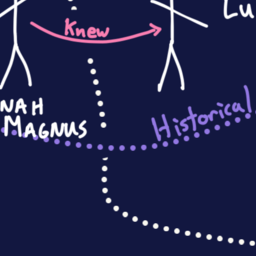 Lu
Knew
NAH
MAGNUS
Historical